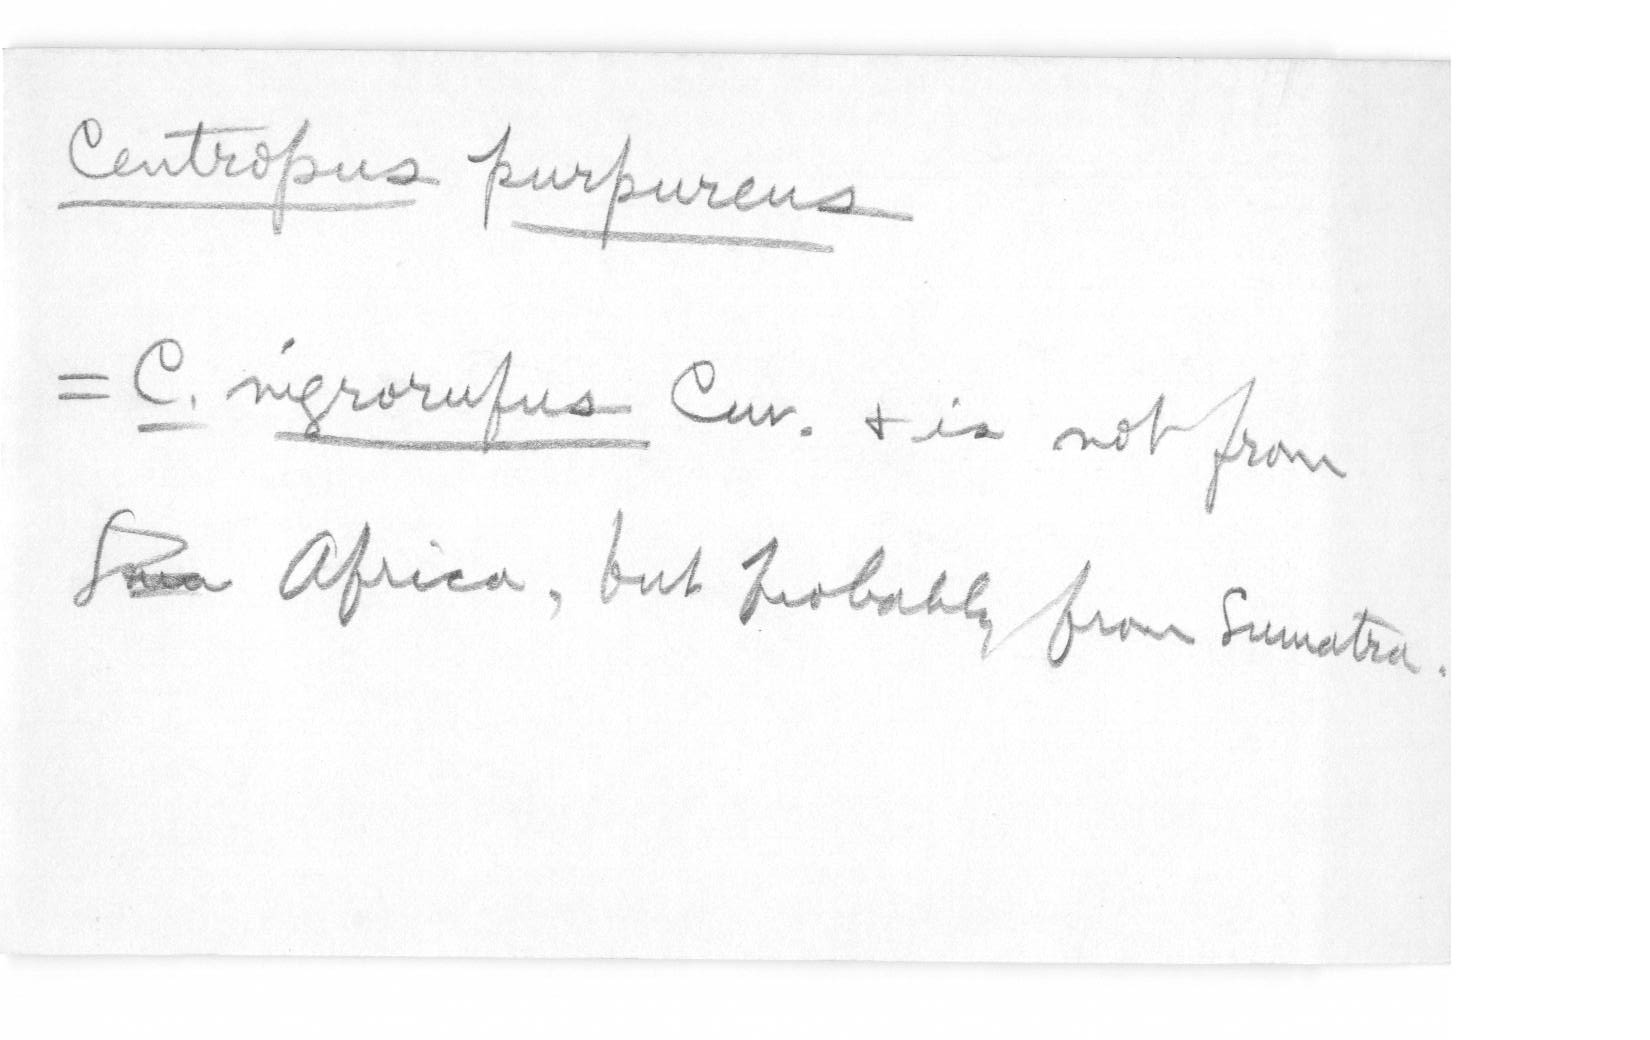 Centropus purpureus
= C. nigrorufus Cuv. + is not from
Africa, but probably from Sumatra.